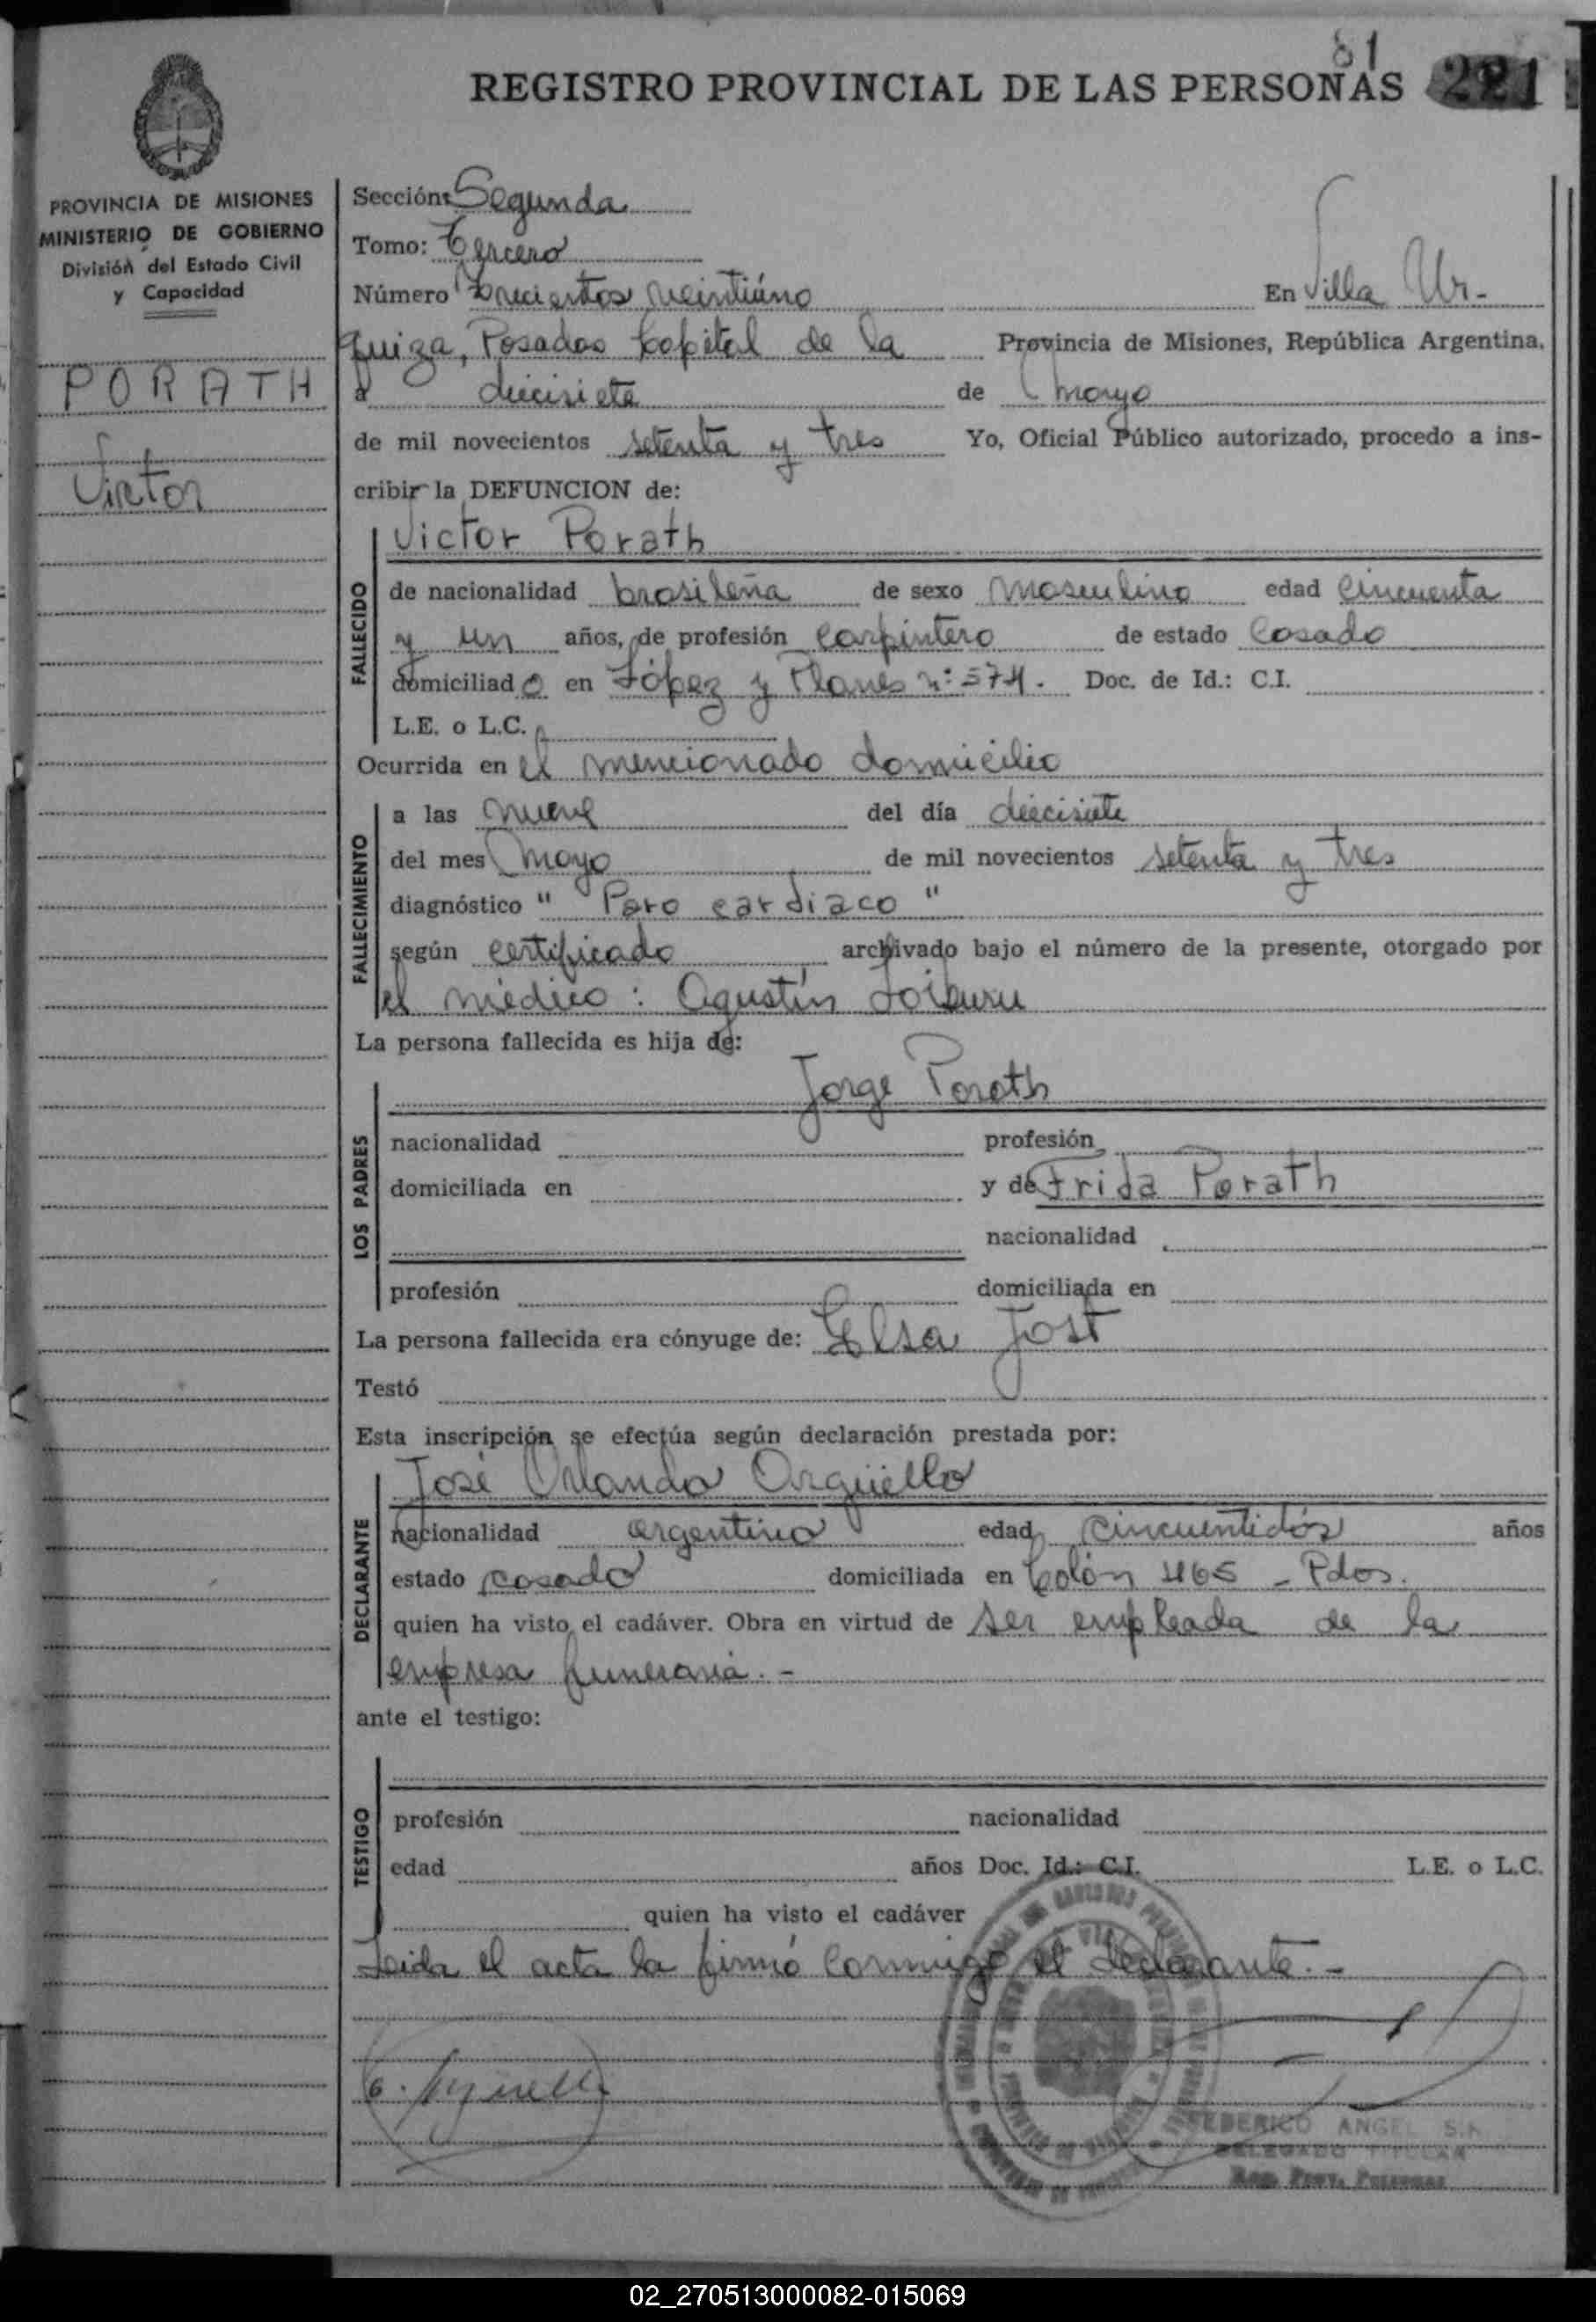 81
REGISTRO PROVINCIAL DE LAS PERSONAS 221
PROVINCIA DE MISIONES
MINISTERIO DE GOBIERNO
División del Estado Civil
y Capacidad
PORATH
Victor
Sección: Segunda
Tomo: Tercero
Número Trecientos veintiúno En Villa Ur-
quiza, Posadas Capital de la Provincia de Misiones, República Argentina,
a diecisiete de mayo
de mil novecientos setenta y tres Yo, Oficial Público autorizado, procedo a ins-
cribir la DEFUNCION de:
Victor Porath
FALLECIDO
de nacionalidad brasileña de sexo masculino edad cincuenta
y un años, de profesión carpintero de estado casado
domiciliado en López y Planes n° 574. Doc. de Id.: C.I.
L.E. o L.C.
Ocurrida en el mencionado domicilio
FALLECIMIENTO
a las nueve del día diecisiete
del mes mayo de mil novecientos setenta y tres
diagnóstico " Paro cardiaco "
según certificado archivado bajo el número de la presente, otorgado por
el médico: Agustín
La persona fallecida es hija de:
LOS PADRES
Jorge Porath
nacionalidad profesión
domiciliada en y de Frida Porath
nacionalidad
profesión domiciliada en
La persona fallecida era cónyuge de: Elsa Jost
Testó
Esta inscripción se efectúa según declaración prestada por:
DECLARANTE
José Orlando Argüello
nacionalidad argentina edad cincuentidós años
estado casado domiciliada en Colón 465 - Pdas.
quien ha visto el cadáver. Obra en virtud de ser empleada de la
empresa funeraria.-
ante el testigo:
TESTIGO
profesión nacionalidad
edad años Doc. Id.: C.I. L.E. o L.C.
quien ha visto el cadáver
Leida el acta la firmó conmigo el declarante.-
FEDERICO ANGEL
DELEGADO TITULAR
02_270513000082-015069